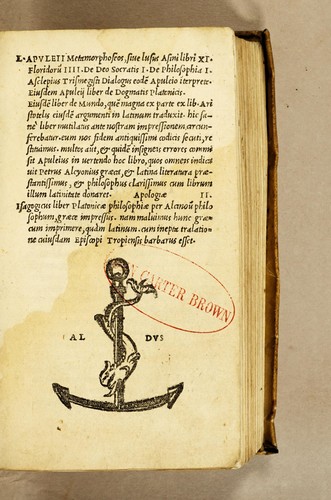 L. APVLEII Metamorphoseos, siue lusus Asini libri XI.
Floridorū IIII. De Deo Socratis I. De Philosophia I.
Asclepius Trismegisti Dialogus eodē Apuleio iterprete.
Eiusdem Apuleij liber de Dogmatis Platonicis.
Eiusdē liber de Mundo, quē magna ex parte ex lib. Ari
stotelis eiusdē argumenti in latinum traduxit. hic sa-
nè liber mutilatus ante nostram impressionem circun-
ferebatur. eum nos fidem antiquissimi codicis secuti, re-
stituimus. multos aūt, & quidē insigneis errores commi
sit Apuleius in uertendo hoc libro, quos omneis indica
uit Petrus Alcyonius græcæ, & latinæ literaturæ præ-
stantissimus, & philosophus clarissimus cum librum
illum latinitate donaret. Apologiæ II.
Isagogicus liber Platonicæ philosophiæ per Alcinoū philo
sophum, græce impressus. nam maluimus hunc græ-
cum imprimere, quàm latinum. cum inepta tralatio-
ne cuiusdam Episcopi Tropiensis barbarus esset.
CARTER BROWN
AL DVS